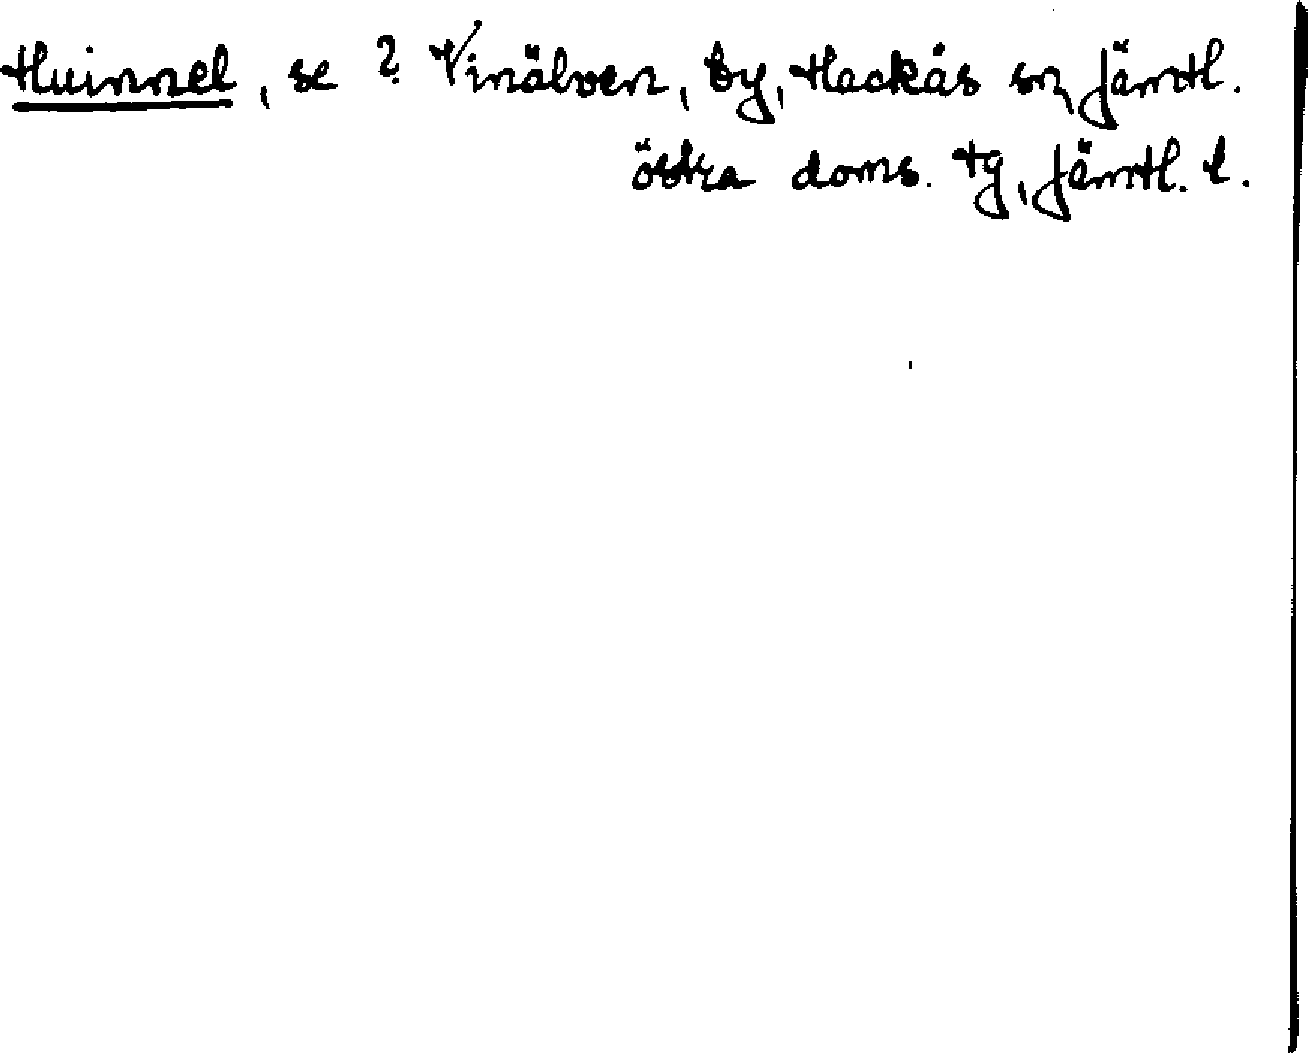 Huinnel, se ? Vinälven, by, Hackås sn, Jämtl.
östra doms. tg, Jämtl. l.